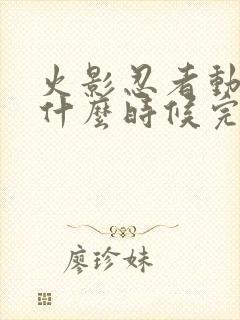 火影忍者動
什麼時候完
廖珍妹